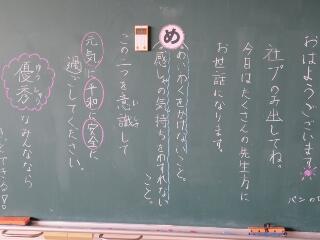 おはようございます
社プのみ出してね。
今日はたくさんの先生方に
お世話になります。
め
めいわくをかけないこと。
感しゃの気持ちをわすれないこと。
この二つを意識して
いしき
元気に平和に安全に
過ごしてください。
優秀なみんななら
ゆうしゅう
きっとできる！！